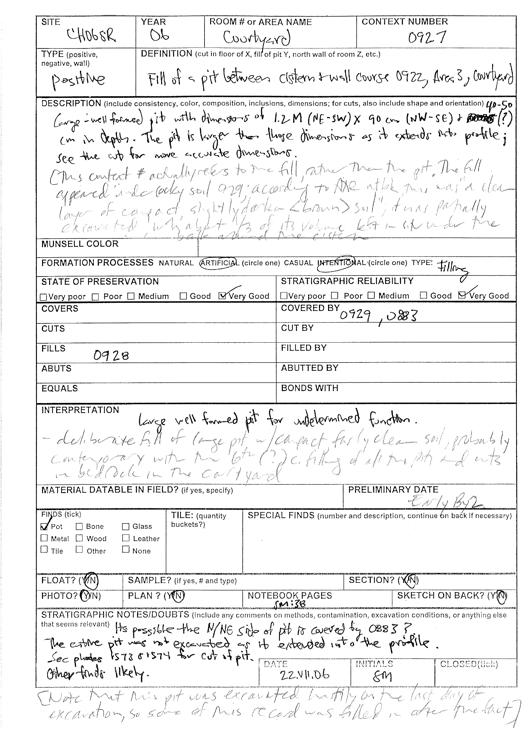 SITE CH06SR
YEAR 06
ROOM # or AREA NAME Courtyard
CONTEXT NUMBER 0927
TYPE (positive, negative, wall) positive
DEFINITION (cut in floor of X, fill of pit Y, north wall of room Z, etc.)
Fill of a pit between cistern + wall course 0922, Area 3, Courtyard
DESCRIPTION (include consistency, color, composition, inclusions, dimensions; for cuts, also include shape and orientation) 40-50
Large well formed pit with dimensions of 1.2 M (NE-SW) x 90 cm (NW-SE) + (?)
cm in depth. The pit is larger than those dimensions as it extends into profile;
see the cut for more accurate dimensions.
(This context # actually refers to the fill, rather than the pit. The fill
appeared under rocky soil 929; according to this was a clean
layer of compact, slightly darker (brown) soil", it was partially
excavated about 1/3 of its volume left in situ under the
MUNSELL COLOR
FORMATION PROCESSES NATURAL ARTIFICIAL (circle one) CASUAL INTENTIONAL (circle one) TYPE: Filling
STATE OF PRESERVATION
STRATIGRAPHIC RELIABILITY
Very poor Poor Medium Good Very Good
Very poor Poor Medium Good Very Good
COVERS
COVERED BY 0929, 0883
CUTS
CUT BY
FILLS 0928
FILLED BY
ABUTS
ABUTTED BY
EQUALS
BONDS WITH
INTERPRETATION
Large well formed pit for undetermined function.
- deliberate fill of large pit w/ compact fairly clean soil, probably
contemporary with the 6th (?) c. filling of all the pits and cuts
in bedrock in the courtyard
MATERIAL DATABLE IN FIELD? (if yes, specify)
PRELIMINARY DATE
Early Byz
FINDS (tick)
Pot Bone Glass
Metal Wood Leather
Tile Other None
TILE: (quantity buckets?)
SPECIAL FINDS (number and description, continue on back if necessary)
FLOAT? (Y/N)
SAMPLE? (if yes, # and type)
SECTION? (Y/N)
PHOTO? (Y/N)
PLAN? (Y/N)
NOTEBOOK PAGES SM:38
SKETCH ON BACK? (Y/N)
STRATIGRAPHIC NOTES/DOUBTS (Include any comments on methods, contamination, excavation conditions, or anything else
that seems relevant) Its possible the N/NE side of pit is covered by 0883?
The entire pit was not excavated as it extended into the profile.
See photos 1573 & 1574 for cut of pit.
Other finds likely.
DATE 22.VII.06
INITIALS SM
CLOSED (tick)
[Note that this pit was excavated hastily on the last day of
excavation, so some of this record was filled in after the fact]